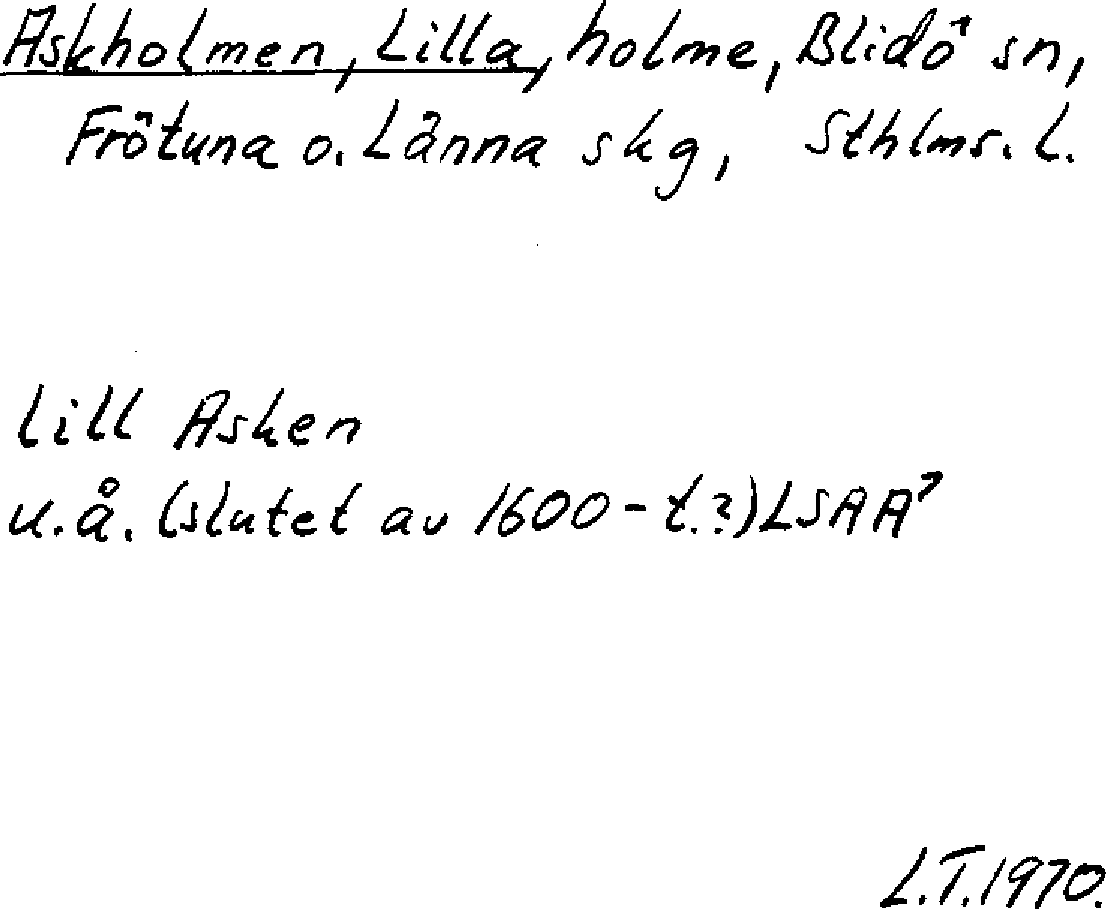 Askholmen, Lilla, holme, Blidö sn,
Frötuna o. Länna skg, Sthlms. l.
Lill Asken
u.å. (slutet av 1600-t.?) LSAA7
L.T.1970.